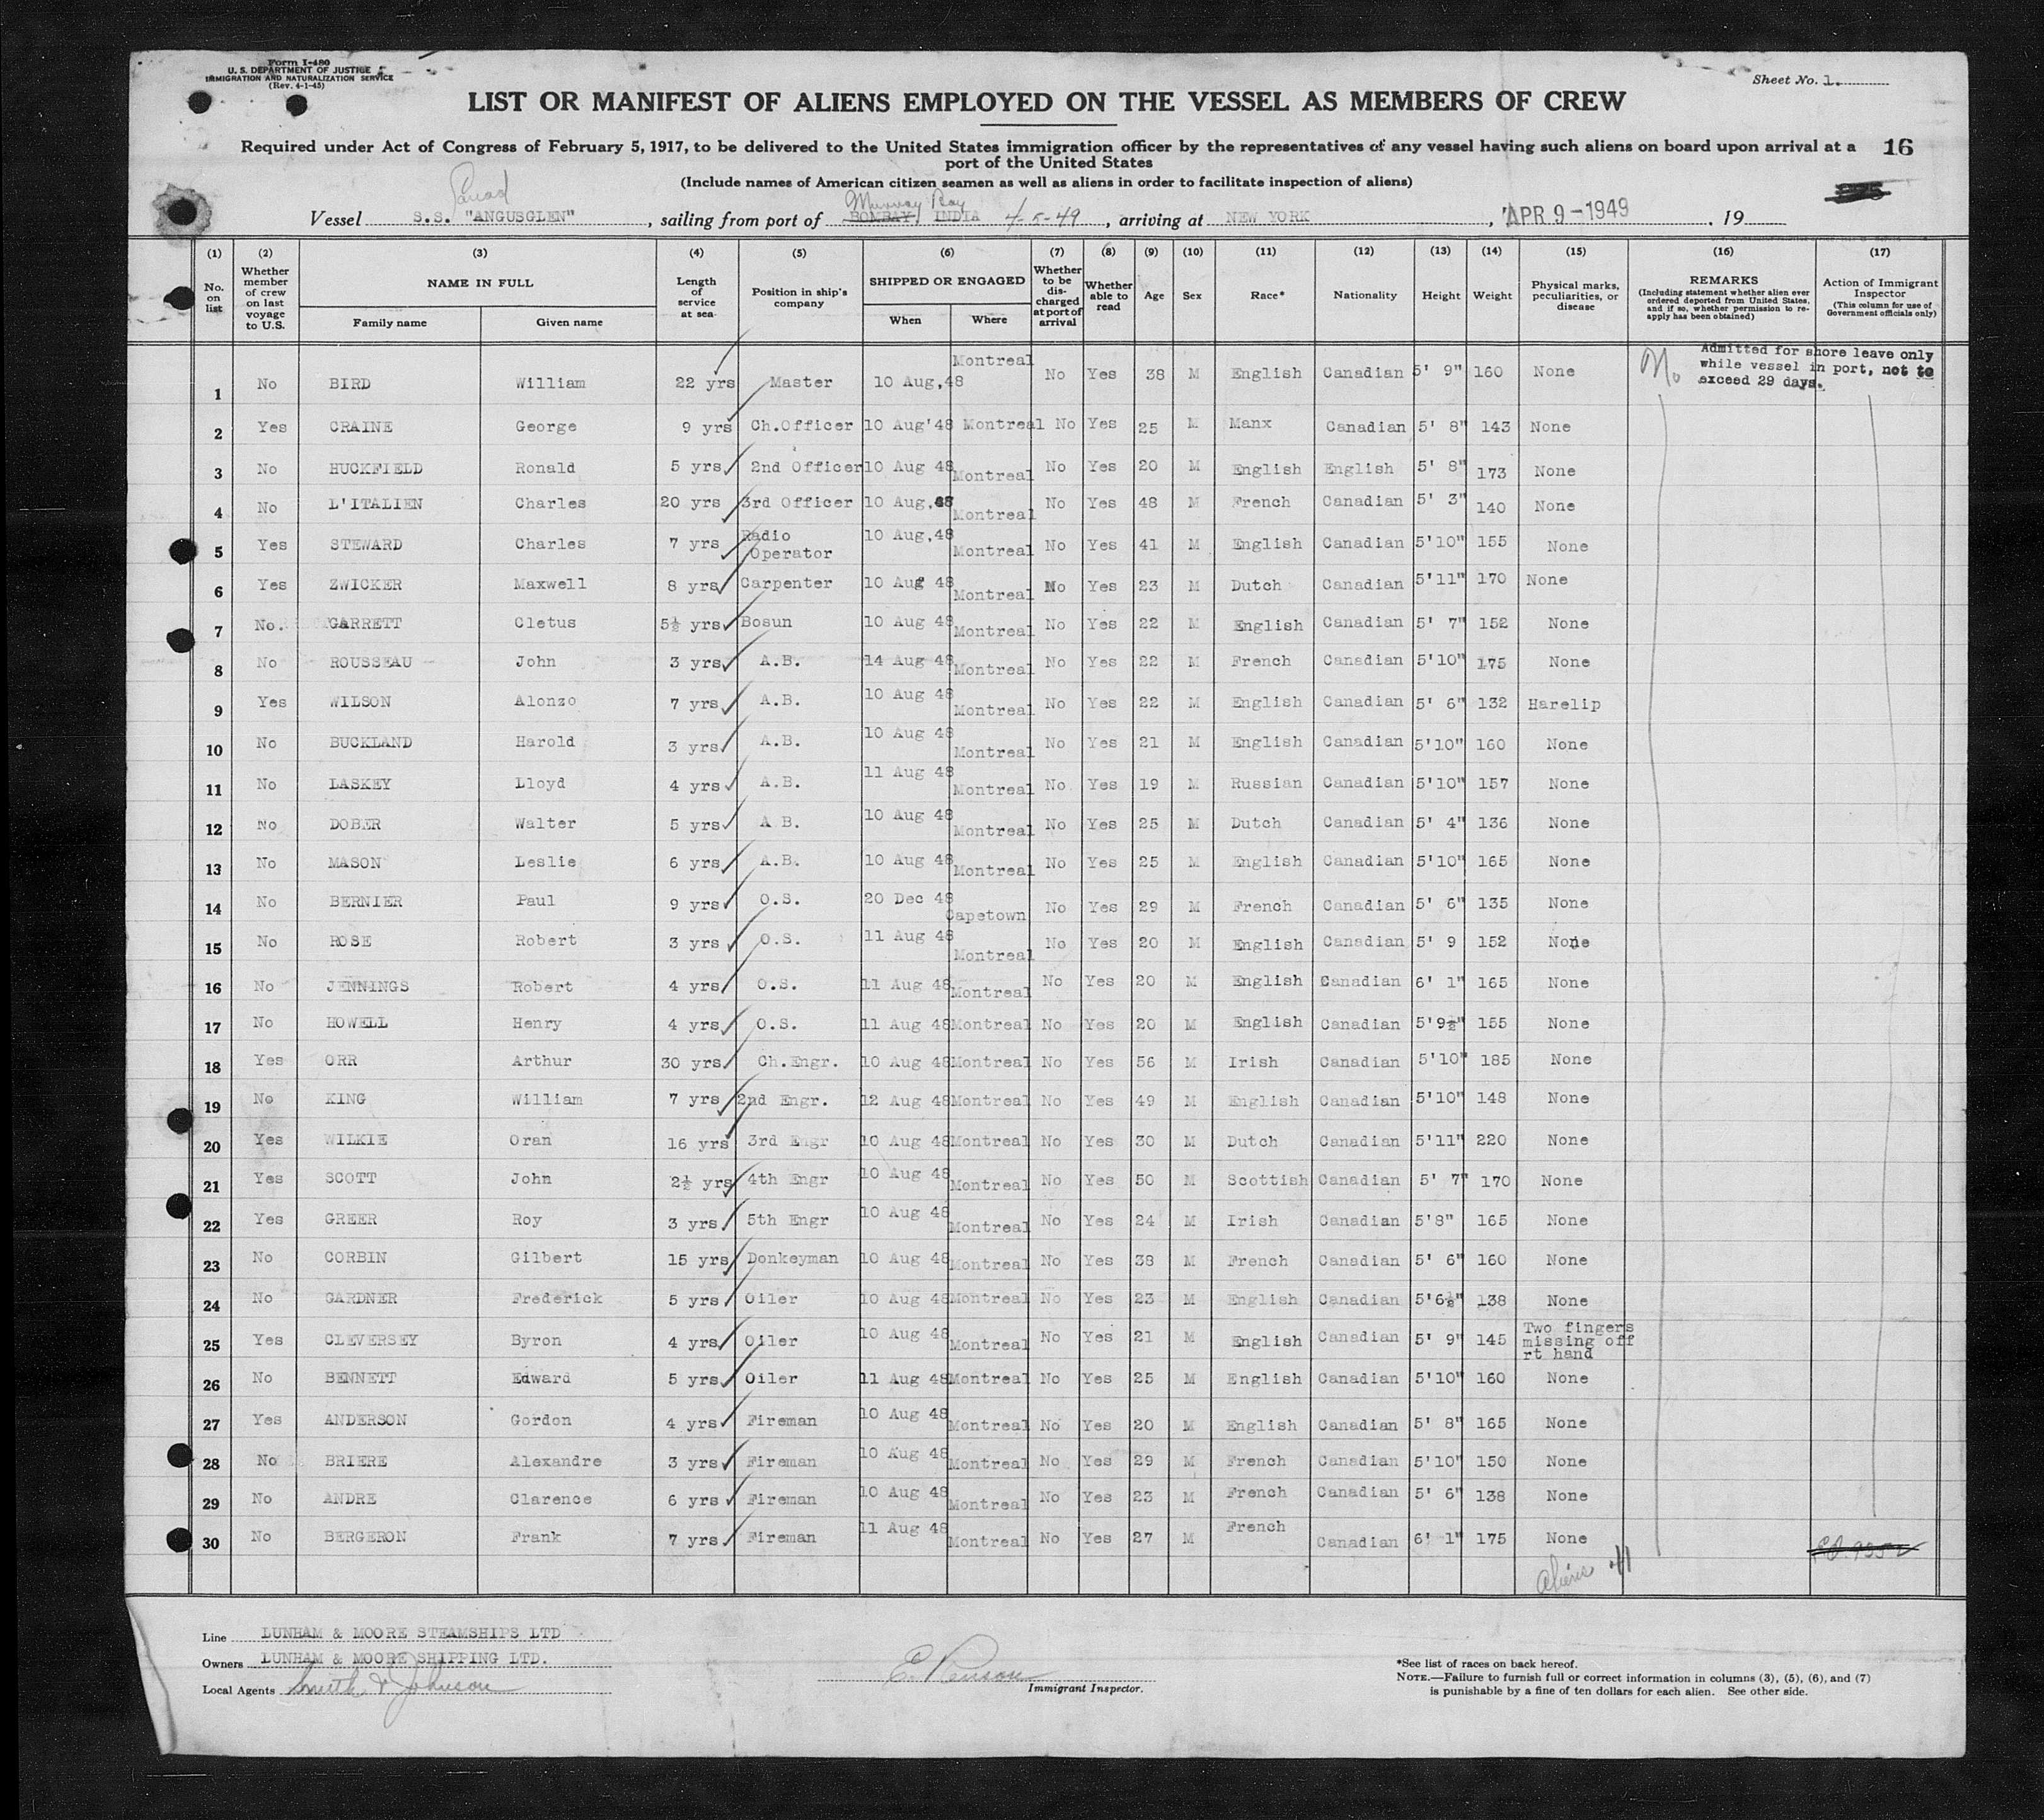 Form I-480
U. S. DEPARTMENT OF JUSTICE
IMMIGRATION AND NATURALIZATION SERVICE
(Rev. 4-1-45)
Sheet No. 1.
LIST OR MANIFEST OF ALIENS EMPLOYED ON THE VESSEL AS MEMBERS OF CREW
Required under Act of Congress of February 5, 1917, to be delivered to the United States immigration officer by the representatives of any vessel having such aliens on board upon arrival at a port of the United States
16
(Include names of American citizen seamen as well as aliens in order to facilitate inspection of aliens)
Murray Bay
Vessel S.S. "ANGUSGLEN", sailing from port of BOMBAY, INDIA 4-5-49, arriving at NEW YORK, APR 9-1949, 19
(1) (2) (3) (4) (5) (6) (7) (8) (9) (10) (11) (12) (13) (14) (15) (16) (17)
No. on list | Whether member of crew on last voyage to U.S. | NAME IN FULL Family name Given name | Length of service at sea | Position in ship's company | SHIPPED OR ENGAGED When Where | Whether to be discharged at port of arrival | Whether able to read | Age | Sex | Race* | Nationality | Height | Weight | Physical marks, peculiarities, or disease | REMARKS (Including statement whether alien ever ordered deported from United States, and if so, whether permission to reapply has been obtained) | Action of Immigrant Inspector (This column for use of Government officials only)
1 No BIRD William 22 yrs Master 10 Aug,48 Montreal No Yes 38 M English Canadian 5' 9" 160 None No Admitted for shore leave only while vessel in port, not to exceed 29 days.
2 Yes CRAINE George 9 yrs Ch.Officer 10 Aug'48 Montreal No Yes 25 M Manx Canadian 5' 8" 143 None
3 No HUCKFIELD Ronald 5 yrs 2nd Officer 10 Aug 48 Montreal No Yes 20 M English English 5' 8" 173 None
4 No L'ITALIEN Charles 20 yrs 3rd Officer 10 Aug,48 Montreal No Yes 48 M French Canadian 5' 3" 140 None
5 Yes STEWARD Charles 7 yrs Radio Operator 10 Aug,48 Montreal No Yes 41 M English Canadian 5'10" 155 None
6 Yes ZWICKER Maxwell 8 yrs Carpenter 10 Aug 48 Montreal No Yes 23 M Dutch Canadian 5'11" 170 None
7 No. GARRETT Cletus 5½ yrs Bosun 10 Aug 48 Montreal No Yes 22 M English Canadian 5' 7" 152 None
8 No ROUSSEAU John 3 yrs A.B. 14 Aug 48 Montreal No Yes 22 M French Canadian 5'10" 175 None
9 Yes WILSON Alonzo 7 yrs A.B. 10 Aug 48 Montreal No Yes 22 M English Canadian 5' 6" 132 Harelip
10 No BUCKLAND Harold 3 yrs A.B. 10 Aug 48 Montreal No Yes 21 M English Canadian 5'10" 160 None
11 No LASKEY Lloyd 4 yrs A.B. 11 Aug 48 Montreal No Yes 19 M Russian Canadian 5'10" 157 None
12 No DOBER Walter 5 yrs A B. 10 Aug 48 Montreal No Yes 25 M Dutch Canadian 5' 4" 136 None
13 No MASON Leslie 6 yrs A.B. 10 Aug 48 Montreal No Yes 25 M English Canadian 5'10" 165 None
14 No BERNIER Paul 9 yrs O.S. 20 Dec 48 Capetown No Yes 29 M French Canadian 5' 6" 135 None
15 No ROSE Robert 3 yrs O.S. 11 Aug 48 Montreal No Yes 20 M English Canadian 5' 9 152 None
16 No JENNINGS Robert 4 yrs O.S. 11 Aug 48 Montreal No Yes 20 M English Canadian 6' 1" 165 None
17 No HOWELL Henry 4 yrs O.S. 11 Aug 48 Montreal No Yes 20 M English Canadian 5'9½" 155 None
18 Yes ORR Arthur 30 yrs Ch.Engr. 10 Aug 48 Montreal No Yes 56 M Irish Canadian 5'10" 185 None
19 No KING William 7 yrs 2nd Engr. 12 Aug 48 Montreal No Yes 49 M English Canadian 5'10" 148 None
20 Yes WILKIE Oran 16 yrs 3rd Engr 10 Aug 48 Montreal No Yes 30 M Dutch Canadian 5'11" 220 None
21 Yes SCOTT John 2½ yrs 4th Engr 10 Aug 48 Montreal No Yes 50 M Scottish Canadian 5' 7" 170 None
22 Yes GREER Roy 3 yrs 5th Engr 10 Aug 48 Montreal No Yes 24 M Irish Canadian 5'8" 165 None
23 No CORBIN Gilbert 15 yrs Donkeyman 10 Aug 48 Montreal No Yes 38 M French Canadian 5' 6" 160 None
24 No GARDNER Frederick 5 yrs Oiler 10 Aug 48 Montreal No Yes 23 M English Canadian 5'6½" 138 None
25 Yes CLEVERSEY Byron 4 yrs Oiler 10 Aug 48 Montreal No Yes 21 M English Canadian 5' 9" 145 Two fingers missing off rt hand
26 No BENNETT Edward 5 yrs Oiler 11 Aug 48 Montreal No Yes 25 M English Canadian 5'10" 160 None
27 Yes ANDERSON Gordon 4 yrs Fireman 10 Aug 48 Montreal No Yes 20 M English Canadian 5' 8" 165 None
28 No BRIERE Alexandre 3 yrs Fireman 10 Aug 48 Montreal No Yes 29 M French Canadian 5'10" 150 None
29 No ANDRE Clarence 6 yrs Fireman 10 Aug 48 Montreal No Yes 23 M French Canadian 5' 6" 138 None
30 No BERGERON Frank 7 yrs Fireman 11 Aug 48 Montreal No Yes 27 M French Canadian 6' 1" 175 None
Aliens
Line LUNHAM & MOORE STEAMSHIPS LTD
Owners LUNHAM & MOORE SHIPPING LTD.
Local Agents Smith & Johnson
Immigrant Inspector.
*See list of races on back hereof.
NOTE.—Failure to furnish full or correct information in columns (3), (5), (6), and (7)
is punishable by a fine of ten dollars for each alien. See other side.